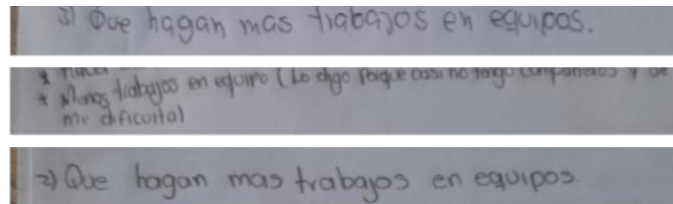 3) Que hagan mas trabajos en equipos.
* Hacer
* Menos trabajos en equipo (Lo digo Porque casi no tengo compañeros y se
me dificulta)
2) Que hagan mas trabajos en equipos.